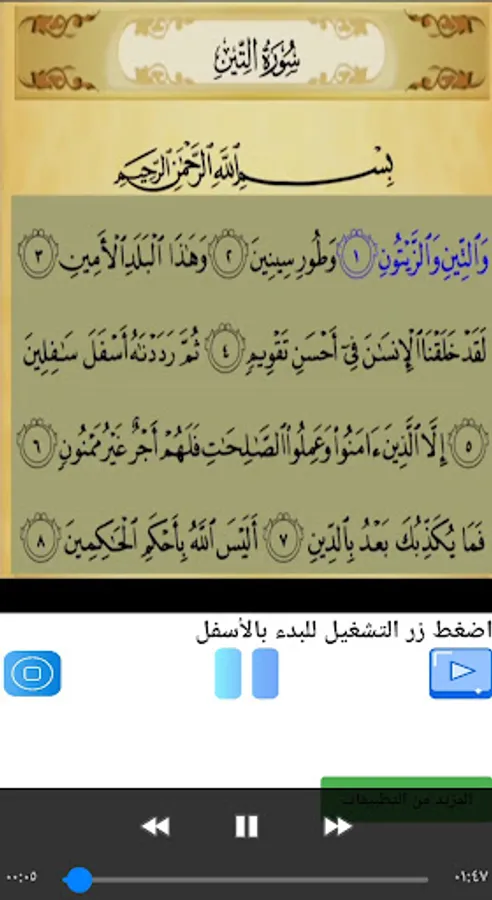 سُورَةُ التِّينِ
بِسْمِ اللَّهِ الرَّحْمَٰنِ الرَّحِيمِ
وَٱلتِّينِ وَٱلزَّيْتُونِ ١ وَطُورِ سِينِينَ ٢ وَهَٰذَا ٱلْبَلَدِ ٱلْأَمِينِ ٣
لَقَدْ خَلَقْنَا ٱلْإِنسَٰنَ فِىٓ أَحْسَنِ تَقْوِيمٍ ٤ ثُمَّ رَدَدْنَٰهُ أَسْفَلَ سَٰفِلِينَ
٥ إِلَّا ٱلَّذِينَ ءَامَنُوا۟ وَعَمِلُوا۟ ٱلصَّٰلِحَٰتِ فَلَهُمْ أَجْرٌ غَيْرُ مَمْنُونٍ ٦
فَمَا يُكَذِّبُكَ بَعْدُ بِٱلدِّينِ ٧ أَلَيْسَ ٱللَّهُ بِأَحْكَمِ ٱلْحَٰكِمِينَ ٨
اضغط زر التشغيل للبدء بالأسفل
المزيد من التطبيقات
٠٠:٠٥
٠١:٤٧